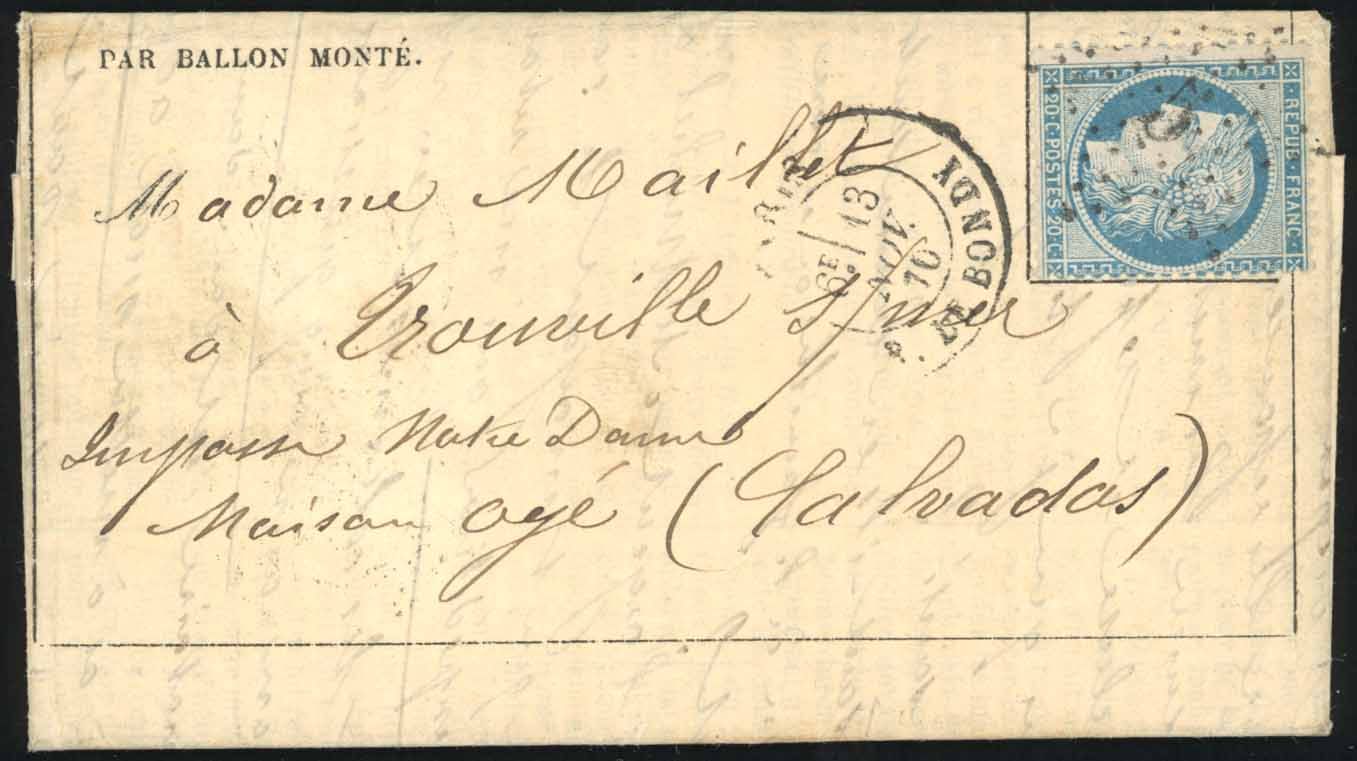 PAR BALLON MONTÉ.
20·C·POSTES 20·C·
REPUB·FRANC·
Madame Maillet
PARIS
R. DE BONDY
6E 13
NOV
70
à Trouville s/mer
Impasse Notre Dame
Maison ogé (Calvados)